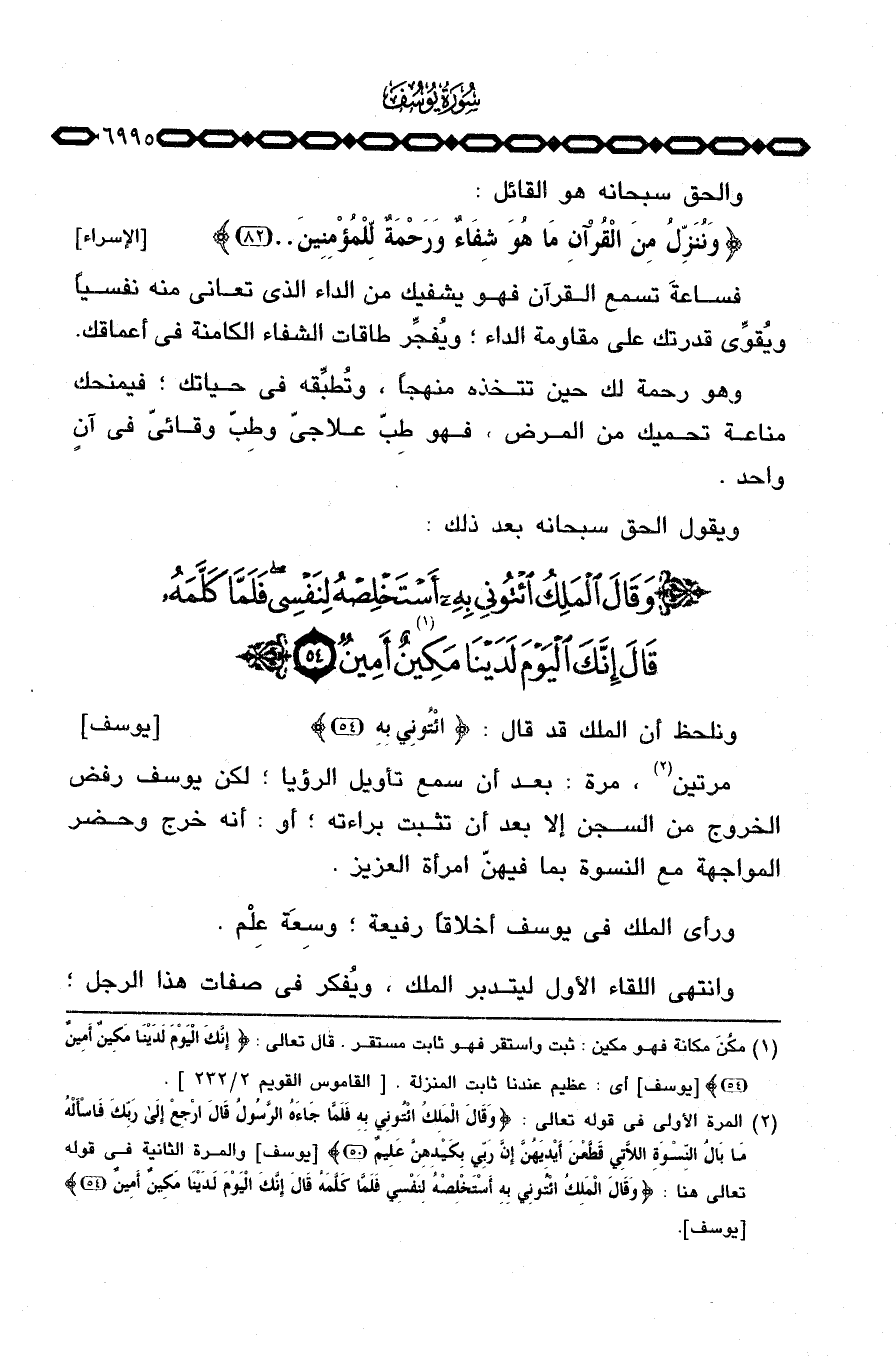 سُورَةُ يُوسُفَ
٦٩٩٥
والحق سبحانه هو القائل :
﴿ وَنُنَزِّلُ مِنَ الْقُرْآنِ مَا هُوَ شِفَاءٌ وَرَحْمَةٌ لِّلْمُؤْمِنِينَ.. (٨٢) ﴾ [الإسراء]
فساعةَ تسمع القرآن فهو يشفيك من الداء الذى تعانى منه نفسياً
ويُقوِّى قدرتك على مقاومة الداء ؛ ويُفجِّر طاقات الشفاء الكامنة فى أعماقك.
وهو رحمة لك حين تتخذه منهجاً ، وتُطبِّقه فى حياتك ؛ فيمنحك
مناعة تحميك من المرض ، فهو طِبّ علاجىّ وطِبّ وقائىّ فى آنٍ
واحد .
ويقول الحق سبحانه بعد ذلك :
﴿ وَقَالَ ٱلْمَلِكُ ٱئْتُونِي بِهِۦٓ أَسْتَخْلِصْهُ لِنَفْسِى ۖ فَلَمَّا كَلَّمَهُۥ
قَالَ إِنَّكَ ٱلْيَوْمَ لَدَيْنَا مَكِينٌ (١) أَمِينٌ ٥٤ ﴾
ونلحظ أن الملك قد قال : ﴿ ائْتُونِي بِهِ (٥٤) ﴾ [يوسف]
مرتين(٢) ، مرة : بعد أن سمع تأويل الرؤيا ؛ لكن يوسف رفض
الخروج من السجن إلا بعد أن تثبت براءته ؛ أو : أنه خرج وحضر
المواجهة مع النسوة بما فيهنّ امرأة العزيز .
ورأى الملك فى يوسف أخلاقاً رفيعة ؛ وسِعَة عِلْم .
وانتهى اللقاء الأول ليتدبر الملك ، ويُفكر فى صفات هذا الرجل ؛
(١) مكُنَ مكانة فهو مكين : ثبت واستقر فهو ثابت مستقر . قال تعالى : ﴿ إِنَّكَ الْيَوْمَ لَدَيْنَا مَكِينٌ أَمِينٌ
(٥٤) ﴾ [يوسف] أى : عظيم عندنا ثابت المنزلة . [ القاموس القويم ٢٣٢/٢ ] .
(٢) المرة الأولى فى قوله تعالى : ﴿ وَقَالَ الْمَلِكُ ائْتُونِي بِهِ فَلَمَّا جَاءَهُ الرَّسُولُ قَالَ ارْجِعْ إِلَىٰ رَبِّكَ فَاسْأَلْهُ
مَا بَالُ النِّسْوَةِ اللَّاتِي قَطَّعْنَ أَيْدِيَهُنَّ إِنَّ رَبِّي بِكَيْدِهِنَّ عَلِيمٌ (٥٠) ﴾ [يوسف] والمرة الثانية فى قوله
تعالى هنا : ﴿ وَقَالَ الْمَلِكُ ائْتُونِي بِهِ أَسْتَخْلِصْهُ لِنَفْسِي فَلَمَّا كَلَّمَهُ قَالَ إِنَّكَ الْيَوْمَ لَدَيْنَا مَكِينٌ أَمِينٌ (٥٤) ﴾
[يوسف].